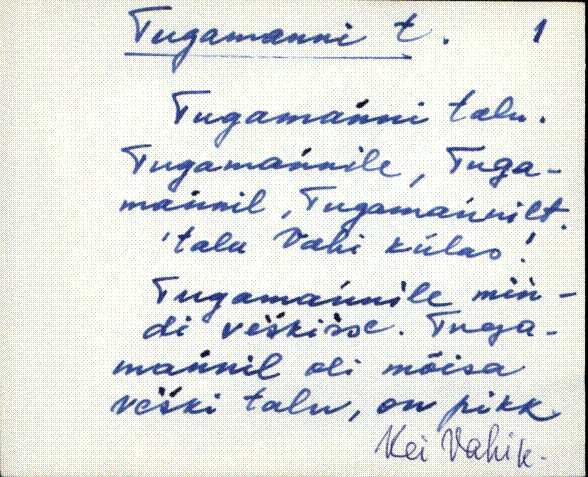 Tugamanni t. 1
Tugamańni talu.
Tugamańnile, Tuga-
mańnil, Tugamańnilt.
'talu Vahi külas!
Tugamańnile miń-
di veškisse. Tuga-
mańnil oli mõisa
veški talu, on pikk
Kei Vahik.